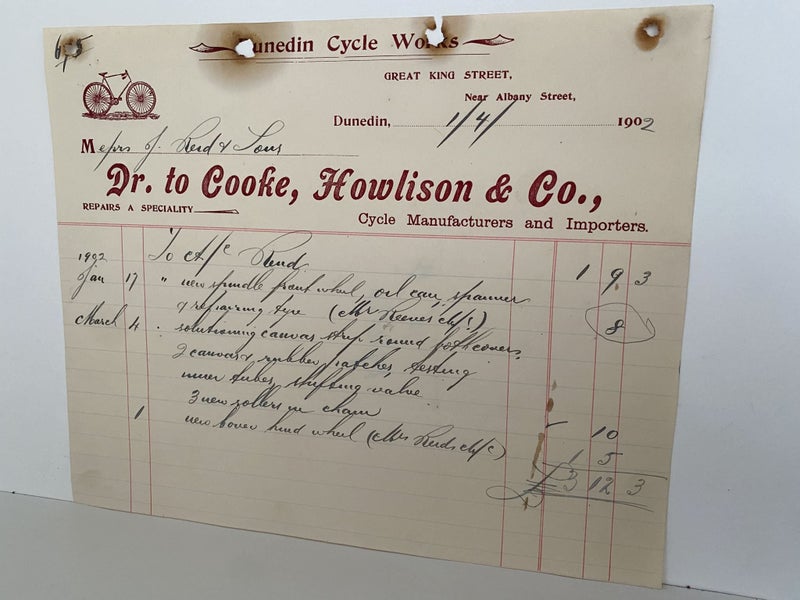 Dunedin Cycle Works
GREAT KING STREET,
Near Albany Street,
Dunedin, 1/4/ 1902
Messrs J. Reid & Sons
Dr. to Cooke, Howlison & Co.,
REPAIRS A SPECIALITY
Cycle Manufacturers and Importers.
1902 To A/c Rend. 1 9 3
Jan 17 " new spindle front wheel, oil can, spanner
& repairing tyre (Mr cycle) 8
March 4 solutioning canvas strip round both covers,
2 canvas & rubber patches, testing
inner tubes, shifting valve
3 new rollers in chain 10
1 new cover hind wheel (Mrs Reids cycle) 1 5
£3 12 3